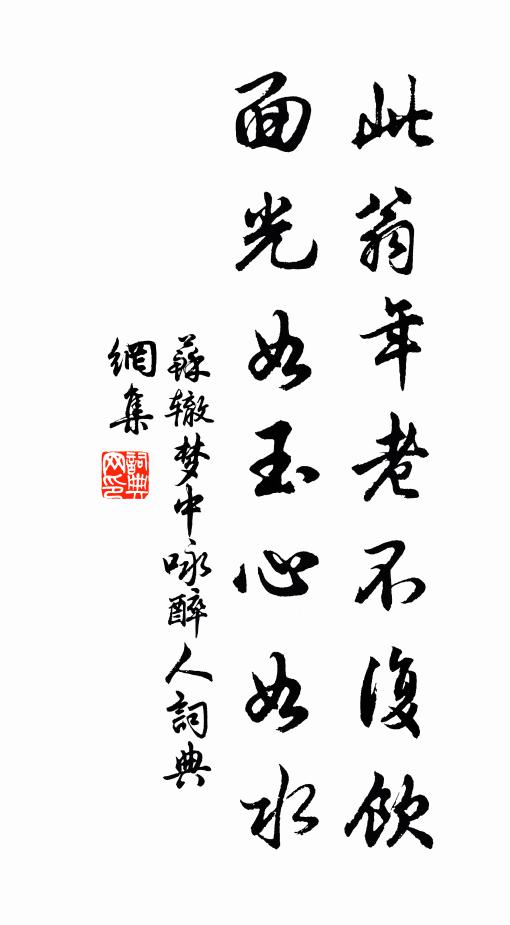 此翁年老不復飲
面光如玉心如水
蘇辙梦中咏醉人詞典
網集
詞典
网印